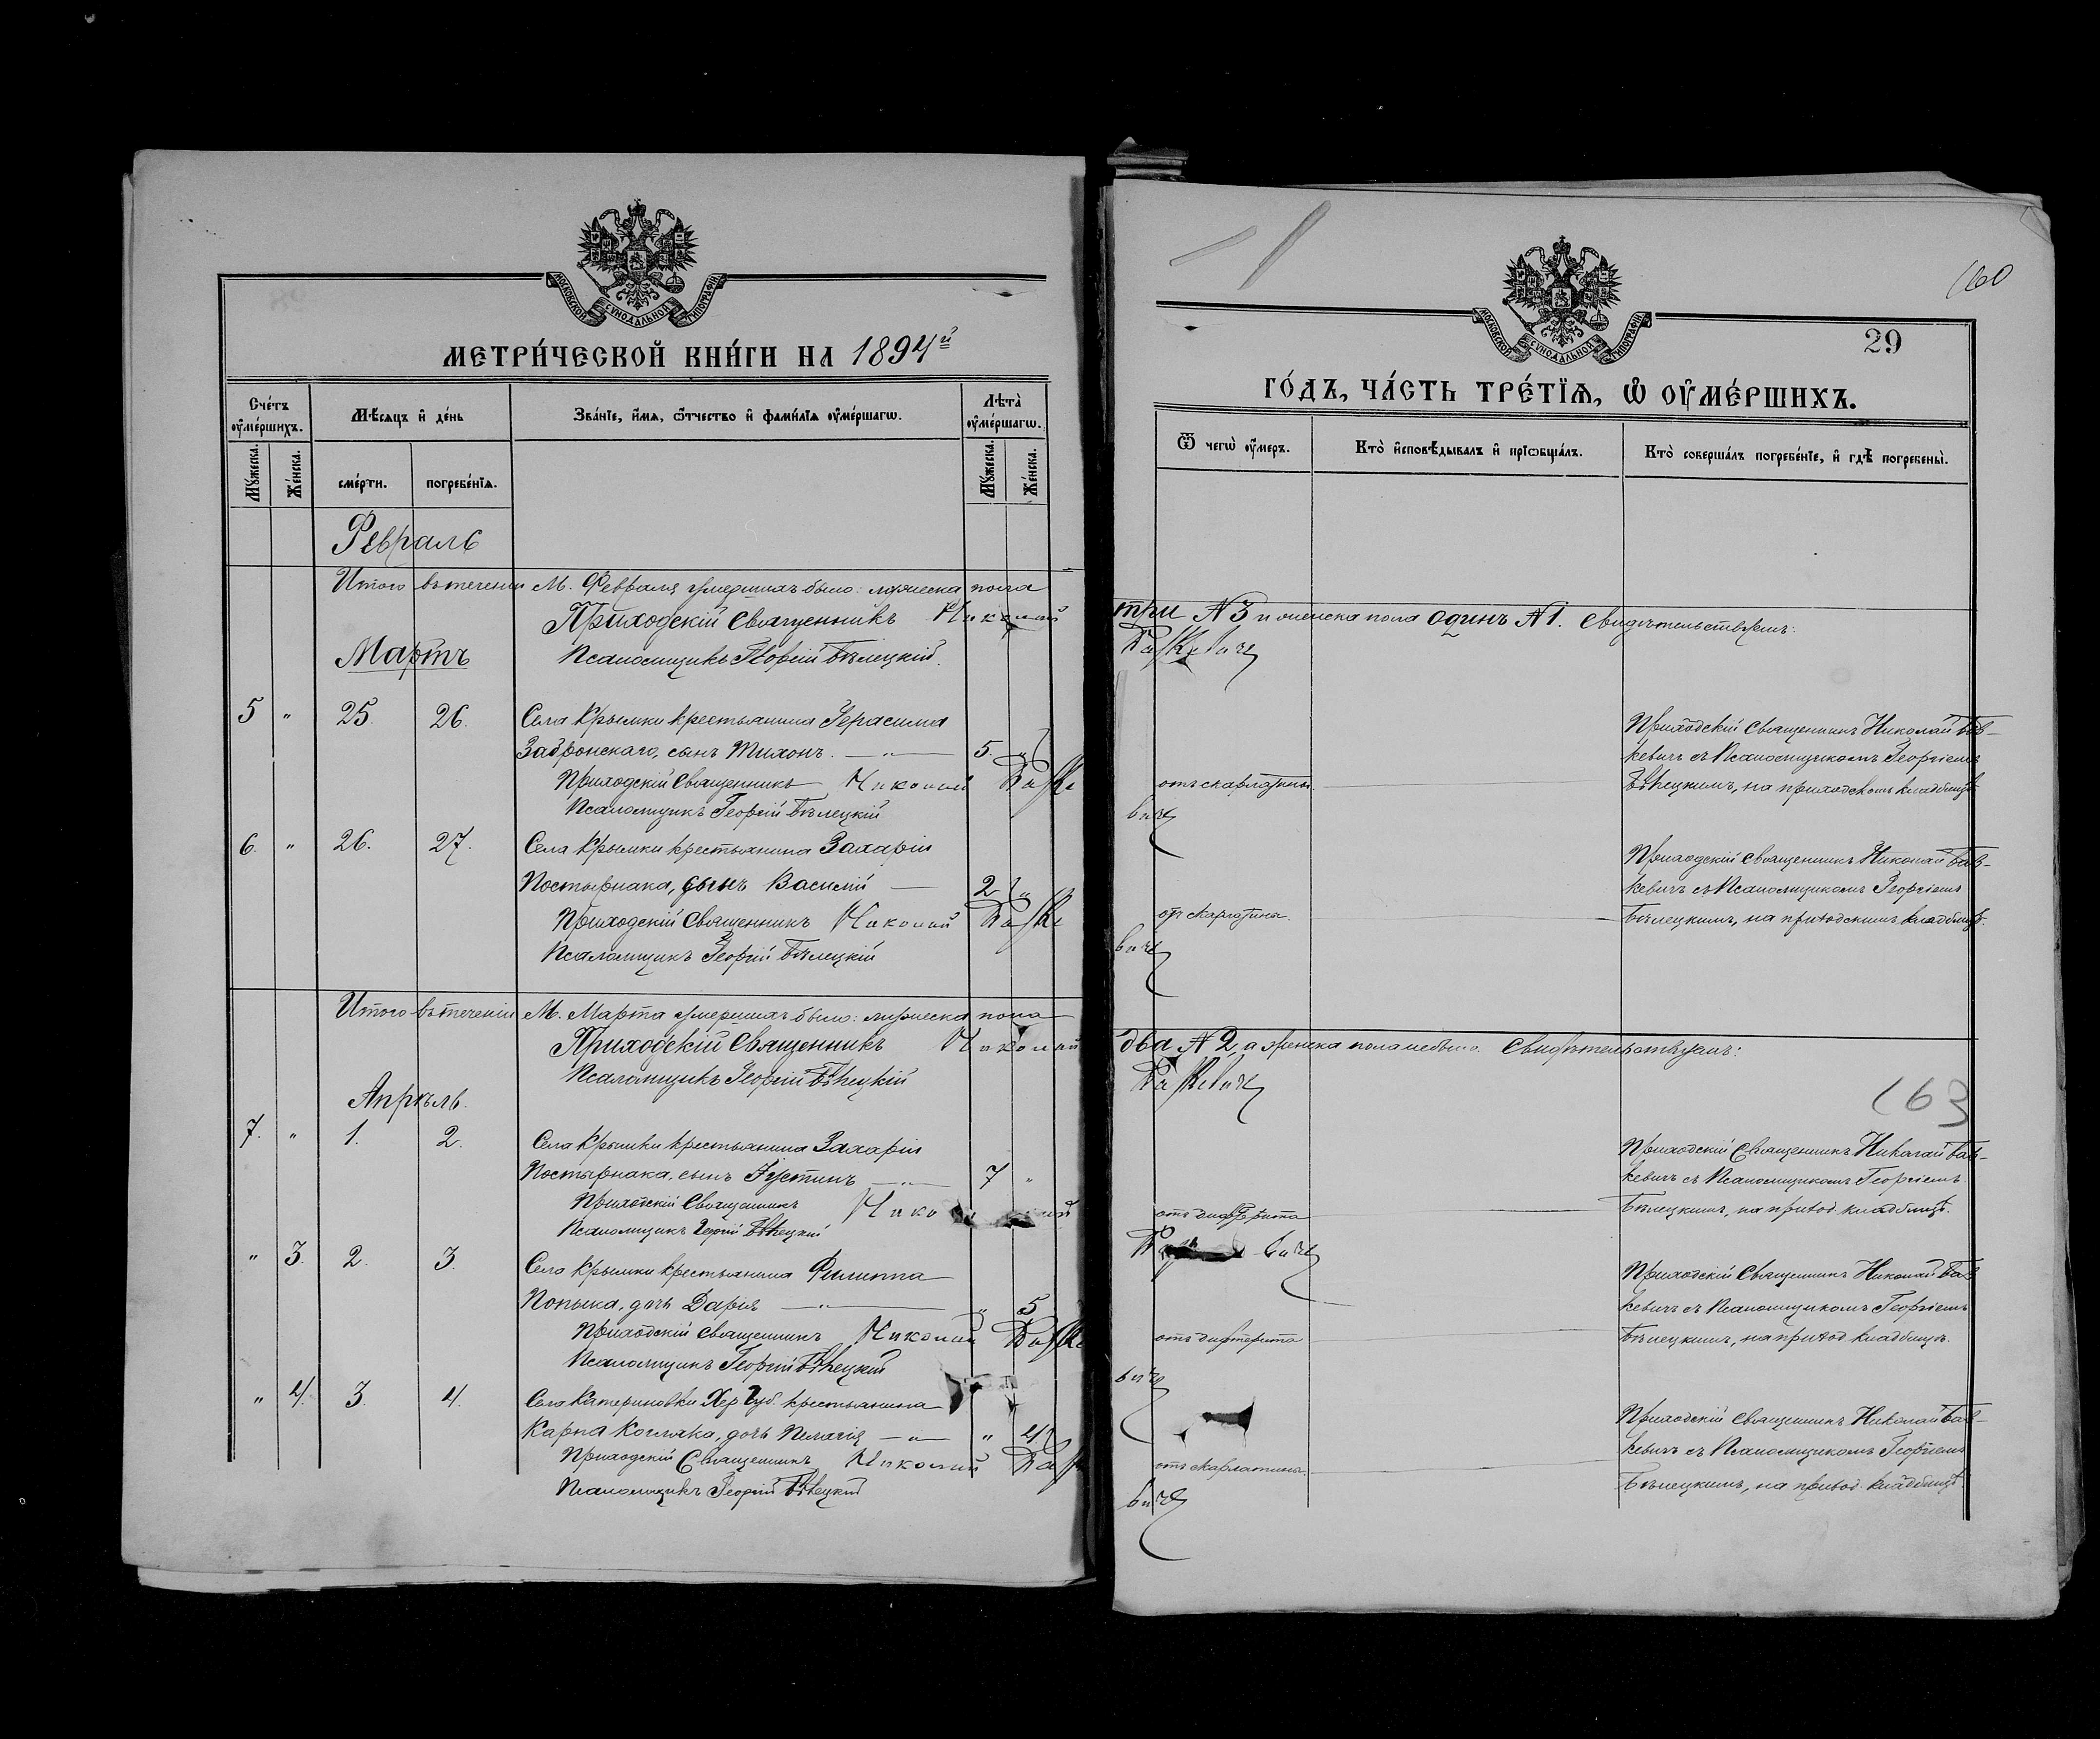 МОСКОВСКОЙ СѴНОДАЛЬНОЙ ТИПОГРАФІИ
МЕТРИ́ЧЕСКОЙ КНИ́ГИ НА 1894й
Сче́тъ ᲂу҆ме́ршихъ.
Мѣ́сяцъ и҆ де́нь
Зва́нїе, и҆́мѧ, ѿтчество и҆ фами́лїѧ ᲂу҆ме́ршагѡ.
Лѣта̀ ᲂу҆ме́ршагѡ.
Мꙋ́жеска.
Же́нска.
сме́рти.
погребе́нїѧ.
Мꙋ́жеска.
Же́нска.
Февраль
Итого въ теченіи М. Февраля умершихъ было: мужеска пола
Приходскій Священникъ Николай
Мартъ
Псаломщикъ Георгій Бѣлецкій.
5 " 25. 26. Села Крымки крестьянина Герасима
Задронскаго, сынъ Тихонъ. — " — 5. "
Приходскій Священникъ Николай Баске
Псаломщикъ Георгій Бѣлецкій
6. " 26. 27. Села Крымки крестьянина Захарія
Постарнака, сынъ Василій — 2 "
Приходскій Священникъ Николай Баске
Псаломщикъ Георгій Бѣлецкій
Итого въ теченіи М. Марта умершихъ было: мужеска пола
Приходскій Священникъ Николай
Псаломщикъ Георгій Бѣлецкій
Апрѣль.
7. " 1. 2. Села Крымки крестьянина Захарія
Постарнака, сынъ Іустинъ — " — 7 "
Приходскій Священникъ
Псаломщикъ Георгій Бѣлецкій
" 3. 2. 3. Села Крымки крестьянина Филиппа
Попыка, дочь Дарія — " — " 5
Приходскій Священникъ Николай Баске
Псаломщикъ Георгій Бѣлецкій
" 4. 3. 4. Села Катериновки Хер. Губ. крестьянина
Карпа Когляка, дочь Пелагія — " — " 4
Приходскій Священникъ Николай Бас
Псаломщикъ Георгій Бѣлецкій
160
МОСКОВСКОЙ СѴНОДАЛЬНОЙ ТИПОГРАФІИ
29
ГО́ДЪ, ЧА́СТЬ ТРЕ́ТЇѦ, Ѡ҆ ОУ҆МЕ́РШИХЪ.
Ѿ чегѡ̀ ᲂу҆́меръ.
Кто̀ и҆сповѣ́дывалъ и҆ прїѡбща́лъ.
Кто̀ соверша́лъ погребе́нїе, и҆ гдѣ̀ погребены̀.
три № 3 и женска пола одинъ № 1. Свидѣтельствуемъ:
Баскевичъ
Приходскій Священникъ Николай Бас-
кевичъ съ Псаломщикомъ Георгіемъ
отъ скарлатины. — Бѣлецкимъ, на приходскомъ кладбищѣ
вичъ
Приходскій Священникъ Николай Бас-
кевичъ съ Псаломщикомъ Георгіемъ
отъ скарлатины. — Бѣлецкимъ, на приходскомъ кладбищѣ.
вичъ
два № 2, а женска пола не было. Свидѣтельствуемъ:
Баскевичъ
163
Приходскій Священникъ Николай Бас-
кевичъ съ Псаломщикомъ Георгіемъ
отъ дифтерита — Бѣлецкимъ, на приход. кладбищѣ.
вичъ
Приходскій Священникъ Николай Бас
кевичъ съ Псаломщикомъ Георгіемъ
отъ дифтерита — Бѣлецкимъ, на приход. кладбищѣ.
вичъ
Приходскій Священникъ Николай Бас-
кевичъ съ Псаломщикомъ Георгіемъ
отъ скарлатины. — Бѣлецкимъ, на приход. кладбищѣ.
вичъ